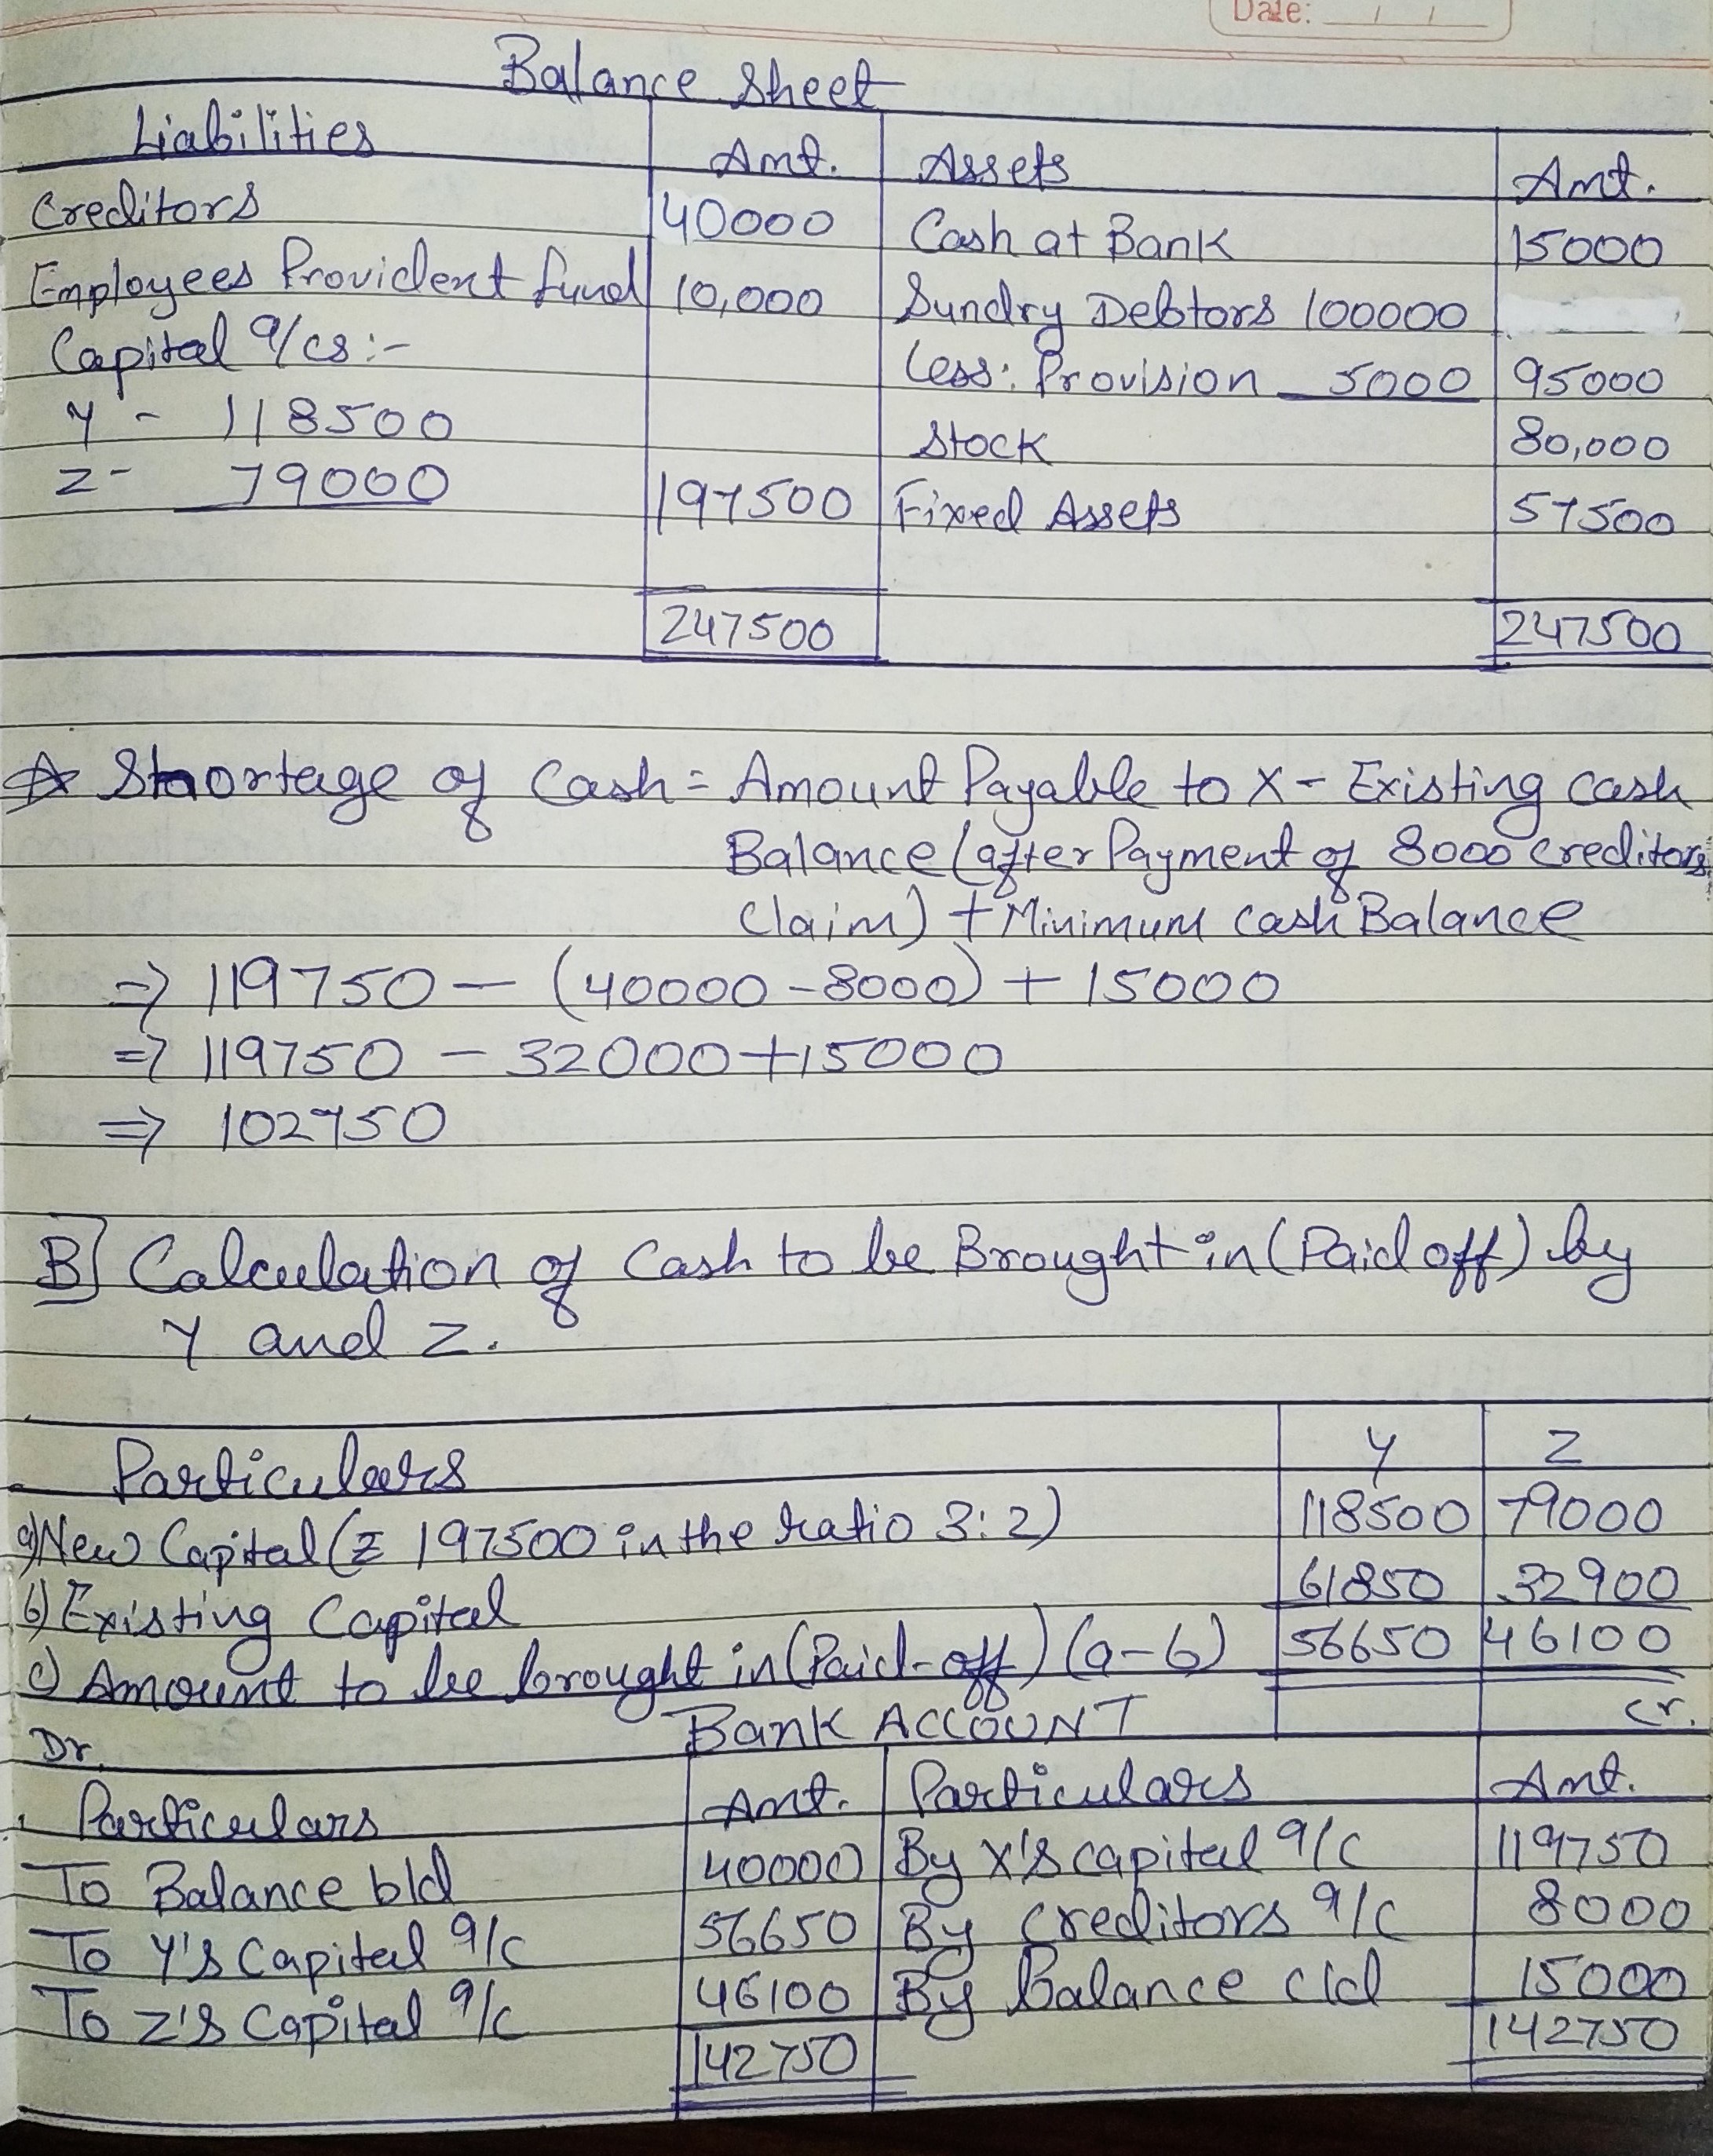 Date: / /
Balance Sheet
Liabilities Amt. Assets Amt.
Creditors 40000 Cash at Bank 15000
Employees Provident fund 10,000 Sundry Debtors 100000
Capital a/cs:- Less: Provision 5000 95000
Y - 118500 Stock 80,000
Z - 79000 197500 Fixed Assets 57500
247500 247500
Shortage of Cash = Amount Payable to X - Existing cash
Balance (after Payment of 8000 creditors
Claim) + Minimum cash Balance
⇒ 119750 - (40000 - 8000) + 15000
⇒ 119750 - 32000 + 15000
⇒ 102750
B] Calculation of Cash to be Brought in (Paid off) by
Y and Z.
Particulars Y Z
a) New Capital (₹ 197500 in the ratio 3:2) 118500 79000
b) Existing Capital 61850 32900
c) Amount to be brought in (Paid-off) (a-b) 56650 46100
Dr. Bank ACCOUNT Cr.
Particulars Amt. Particulars Amt.
To Balance b/d 40000 By X's capital a/c 119750
To Y's Capital a/c 56650 By Creditors a/c 8000
To Z's Capital a/c 46100 By Balance c/d 15000
142750 142750